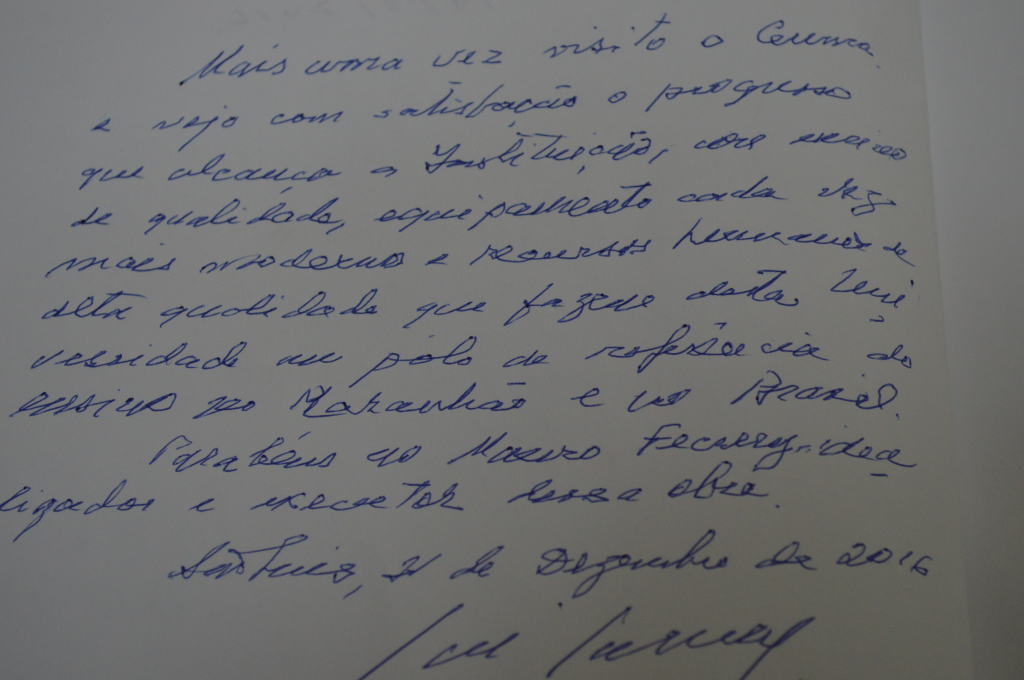 Mais uma vez visito o Ceuma
e vejo com satisfação o progresso
que alcança a Instituição, com ensino
de qualidade, equipamento cada vez
mais moderno e recursos humanos de
alta qualidade que fazem desta Uni
versidade um pólo de referência do
ensino no Maranhão e no Brasil.
Parabéns ao Mauro Fecury, idea
lizador e executor dessa obra.
São Luis, de Dezembro de 2016
José Sarney